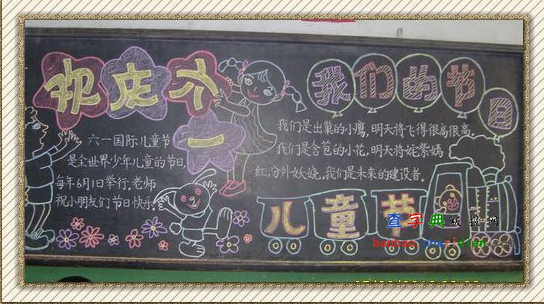 欢庆六一
我们的节日
六一国际儿童节
是全世界少年儿童的节日,
每年6月1日举行,老师
祝小朋友们节日快乐
我们是出巢的小鹰,明天将飞得很高很高,
我们是含苞的小花,明天将姹紫嫣
红,分外妖娆,我们是未来的建设者。
儿童节
查字典